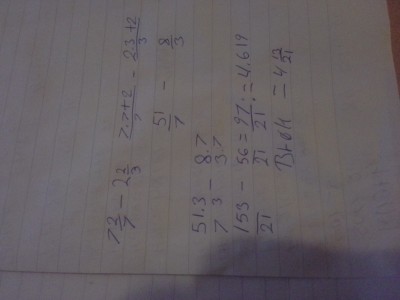 7 2/7 - 2 2/3   7.7+2/7 - 23+2/3
51/7 - 8/3
51.3/7 3 - 8.7/3.7
153/21 - 56/21 = 97/21 = 4.619
Brøk = 4 13/21